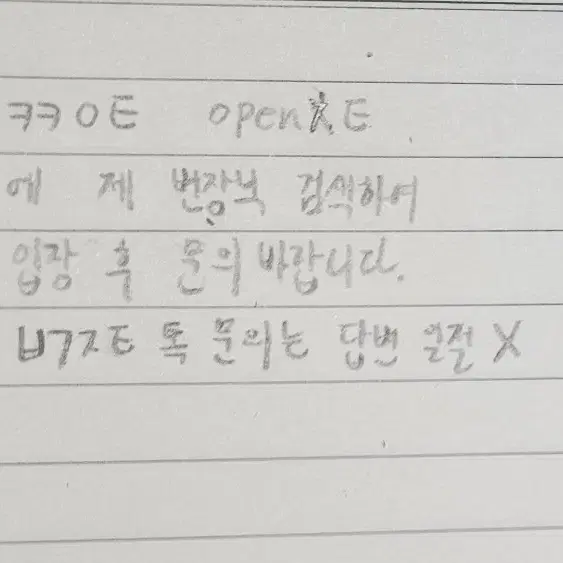 ㅋㅋㅇㅌ open치ㅌ
에 제 번장닉 검색하여
입장 후 문의 바랍니다.
ㅂㄱㅈㅌ 톡 문의는 답변 일절 X